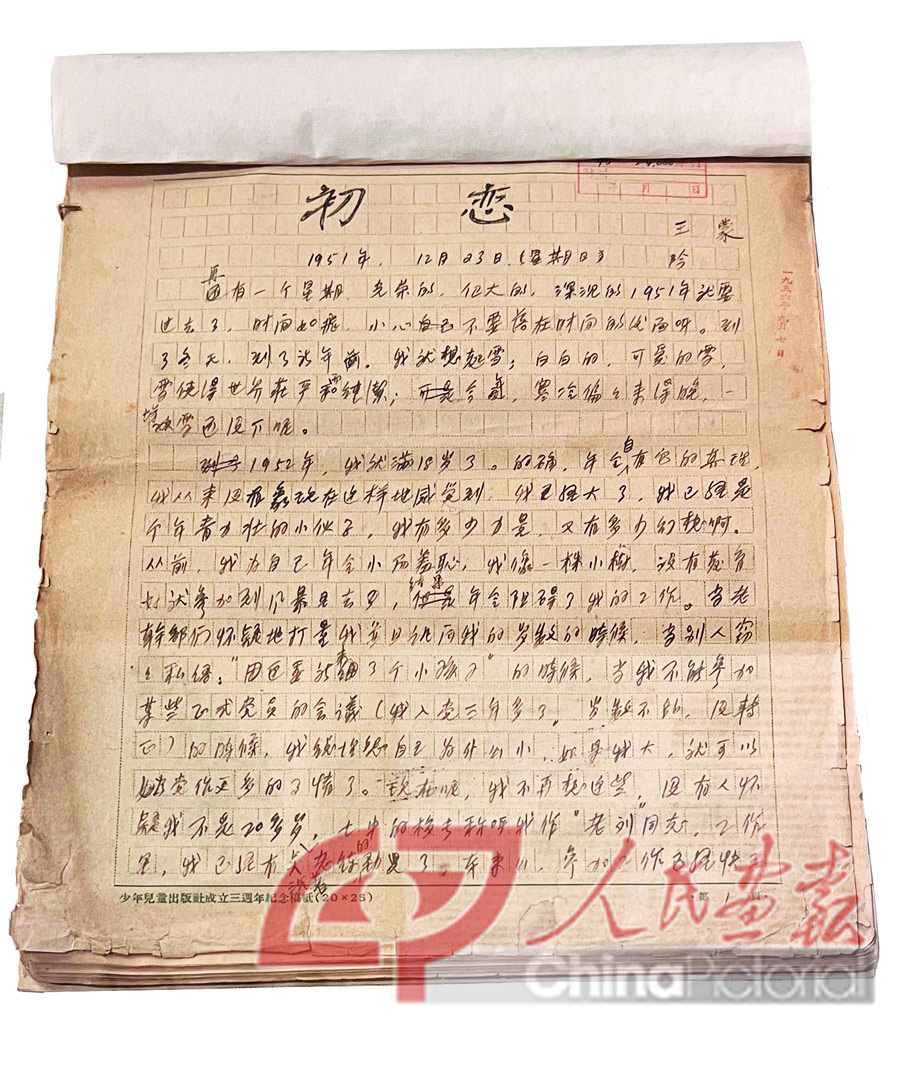 初恋
王蒙
1951年,12月23日(星期日) 阴
再有一个星期,光荣的,伟大的,深沉的1951年就要
过去了,时间如飞,小心自己不要落在时间的后面呀。到
了冬天,到了新年前,我就想起雪;白白的,可爱的雪,
雪使得世界庄严和纯洁;今年,寒冷偏偏来得晚,一
块雪也没下呢。
1952年,我就满18岁了。的确,年令自有它的真理,
我从来没有象现在这样地感觉到,我已经大了,我已经是
个年青力壮的小伙子,我有多少力量,又有多少幻想啊。
从前,我为自己年令小而羞耻,我像一株小樹,没有发育
好就参加到风暴里去了,结果年令阻碍了我的工作。当老
幹部们怀疑地打量我并且询问我的岁数的時候,当别人窃
窃私语:"团区委新来了个小孩子"的時候,当我不能参加
某些正式党员的会議(我入党三年多了,岁数不够,没轉
正)的時候,我就埋怨自己为什么小,如果我大,就可以
给党作更多的事情了。现在呢,我不再想这些,没有人怀
疑我不是20多岁,七中的校长称呼我作"老刘"同志,工作
里,我已经有
少年兒童出版社成立三週年紀念稿紙(20×25)
第 1 頁
月 日
人民画报
China Pictorial